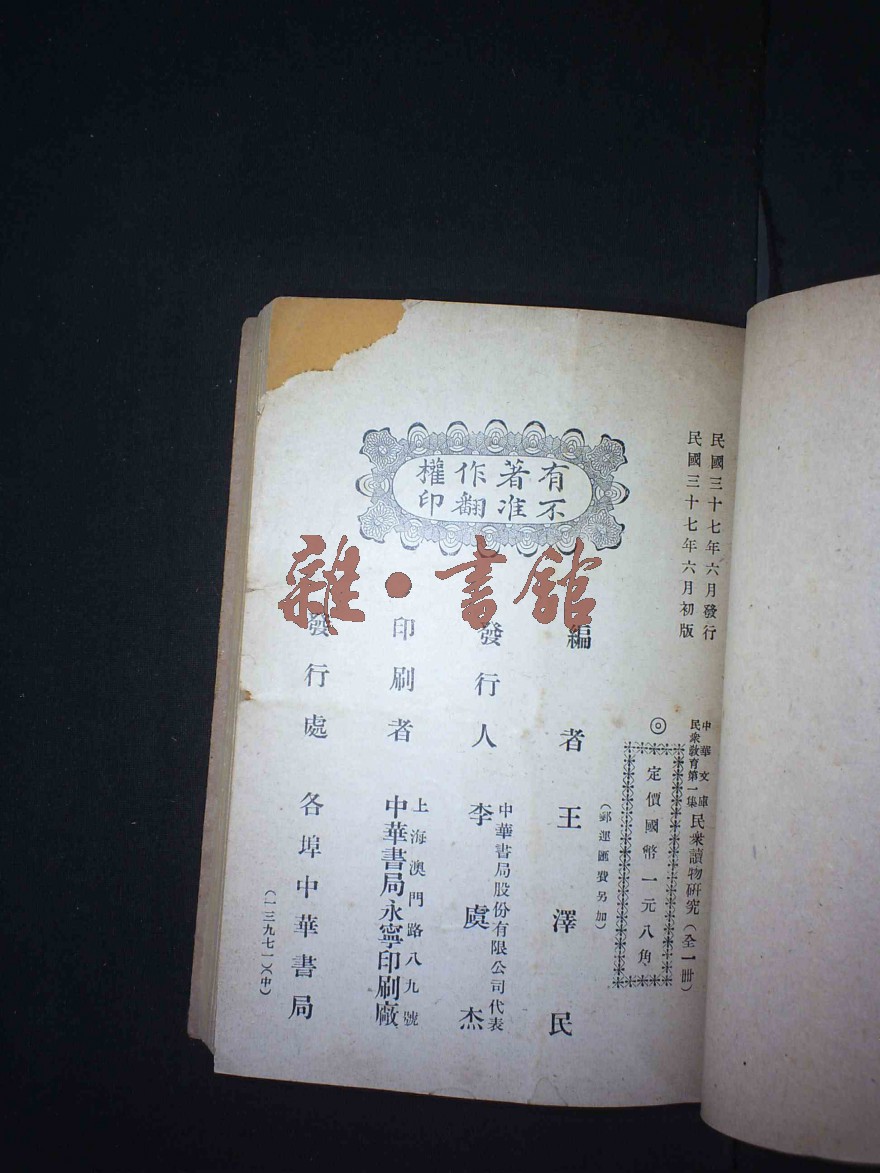 民國三十七年六月發行
民國三十七年六月初版
中華文庫
民衆教育第一集
民衆讀物研究（全一冊）
◎定價國幣一元八角
（郵運匯費另加）
有著作權
不准翻印
編者王澤民
發行人李虞杰
中華書局股份有限公司代表
印刷者
上海澳門路八九號
中華書局永寧印刷廠
發行處各埠中華書局
（一三九七一）（中）
雜·書館